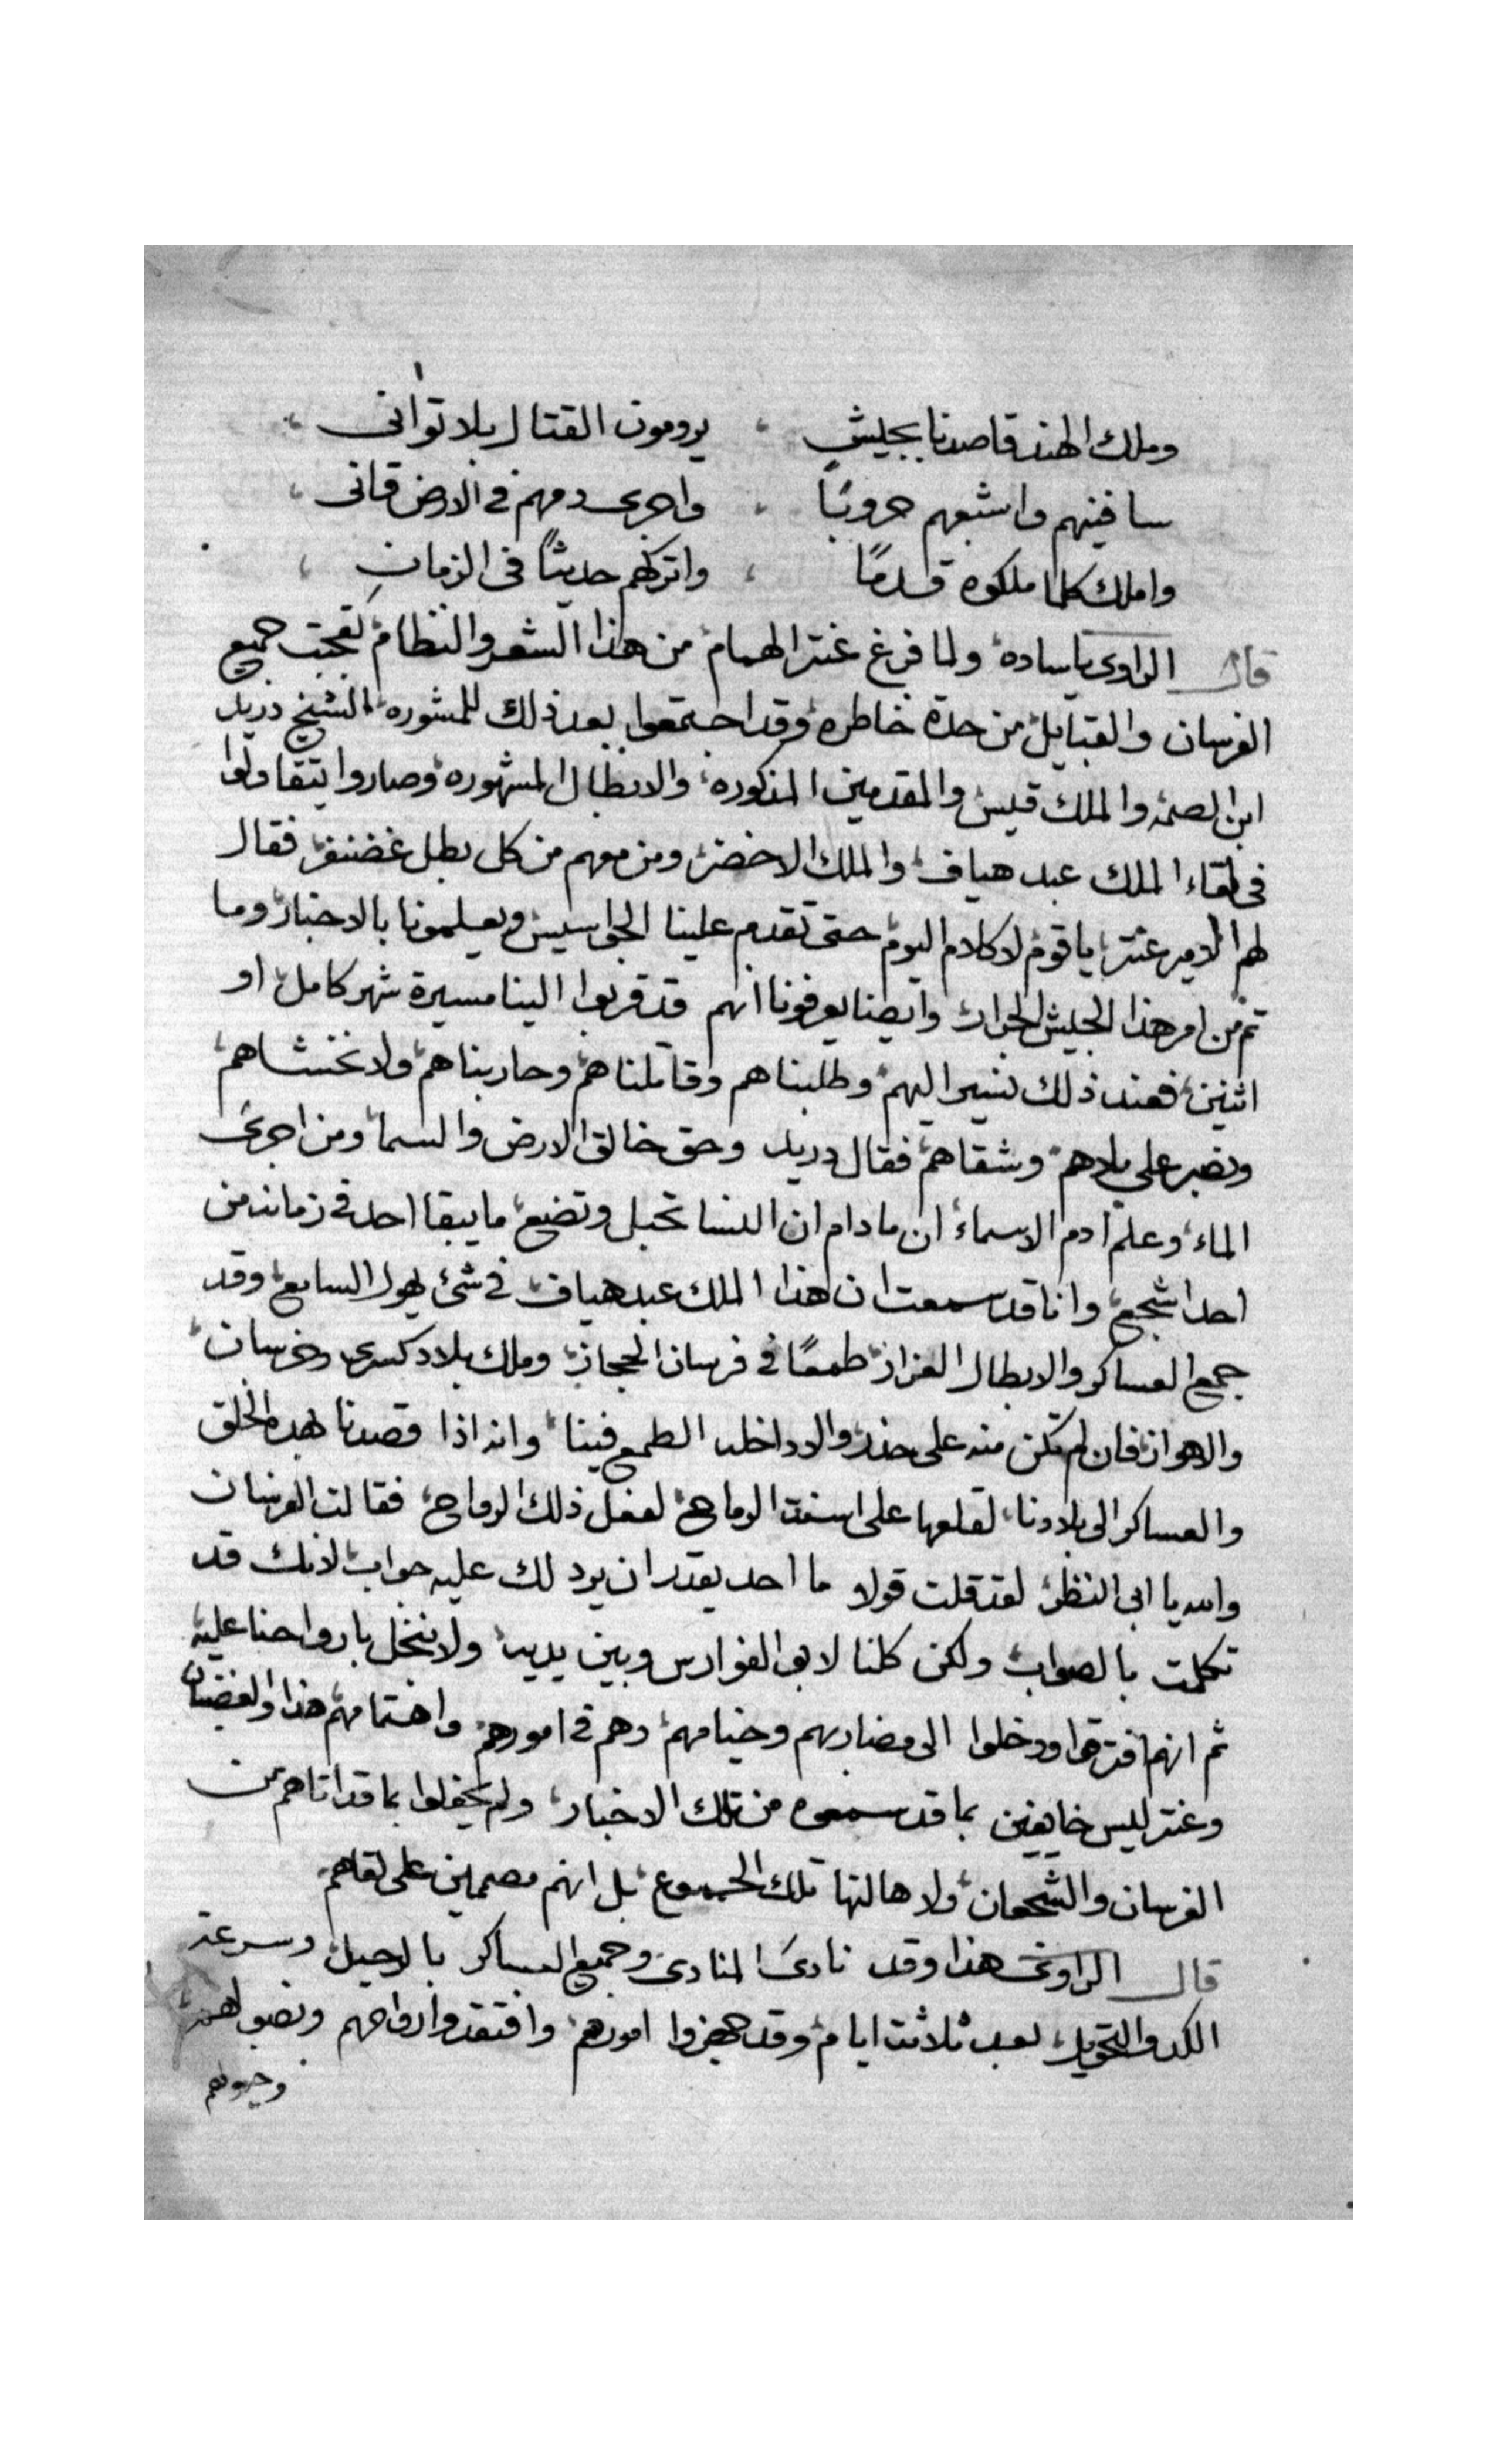 وملك الهند قاصدنا بجيش ، يرومون القتال بلا توانى ،
سافنيهم واشبعهم حروبًا ، واجرى دمهم فى الارض قانى ،
واملك كلما ملكوه قدمًا ، واتركهم حديثًا فى الزمانِ ،
قال الراوى ياساده ولما فرغ عنتر الهمام من هذا الشعر والنظام تعجبت جميع
الفرسان والقبايل من حدة خاطره وقد اجتمعوا بعد ذلك للمشوره الشيخ دريد
ابن الصمه والملك قيس والمقدمين المذكوره والابطال المشهوره وصاروا يتقاولوا
فى لقاء الملك عبد هياف والملك الاخضر ومن معهم من كل بطل غضنفر فقال
لهم الامير عنتر يا قوم لا كلام اليوم حتى تقدم علينا الجواسيس ويعلمونا بالاخبار وما
تم من امر هذا الجيش الجرار وايضا يعرفونا انهم قد قربوا الينا مسيرة شهر كامل او
اثنين فعند ذلك نسير اليهم وطلبناهم وقاتلناهم وحاربناهم ولا نخشاهم
ونصبر على بلاهم وشقاهم فقال دريد وحق خالق الارض والسما ومن اجرى
الماء وعلم ادم الاسماء ان مادام ان النسا تحبل وتضع ما يبقا احد فى زمانه من
احد اشجع وانا قد سمعت ان هذا الملك عبد هياف فى شئ يهول السامع وقد
جمع العساكر والابطال العزاز طمعًا فى فرسان الحجاز وملك بلاد كسرى وخرسان
والاهواز فان لم تكن منه على حذر والا داخله الطمع فينا وانه اذا قصدنا بهذه الخلق
والعساكر الى بلادنا لقلعها على اسنة الرماح لفعل ذلك الوقاح فقالت الفرسان
والله يا ابى النظر لقد قلت قولا ما احد يقدر ان يرد لك عليه جواب لانك قد
تكلمت بالصواب ولكن كلنا لابو الفوارس وبين يديه ولا نبخل بارواحنا عليه
ثم انهم افترقوا ودخلوا الى مضاربهم وخيامهم وهم فى امورهم واهتمامهم هذا والغضبان
وعنتر ليس خايفين بما قد سمعوه من تلك الاخبار ولم يحفلوا بما قد اتاهم من
الفرسان والشجعان ولا هالتها تلك الجموع بل انهم مصممين على لقاهم
قال الراوى هذا وقد نادى المنادى وجميع العساكر بالرحيل وسرعة
الكد والتحويل بعد ثلاثت ايام وقد جهزوا امورهم وافتقدوا ارواحهم ونصبوا لهم
وخيولهم